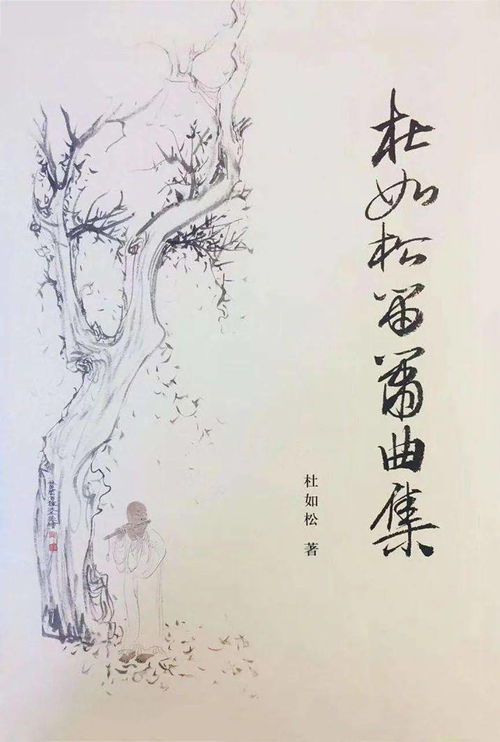 杜如松笛箫曲集
杜如松 著